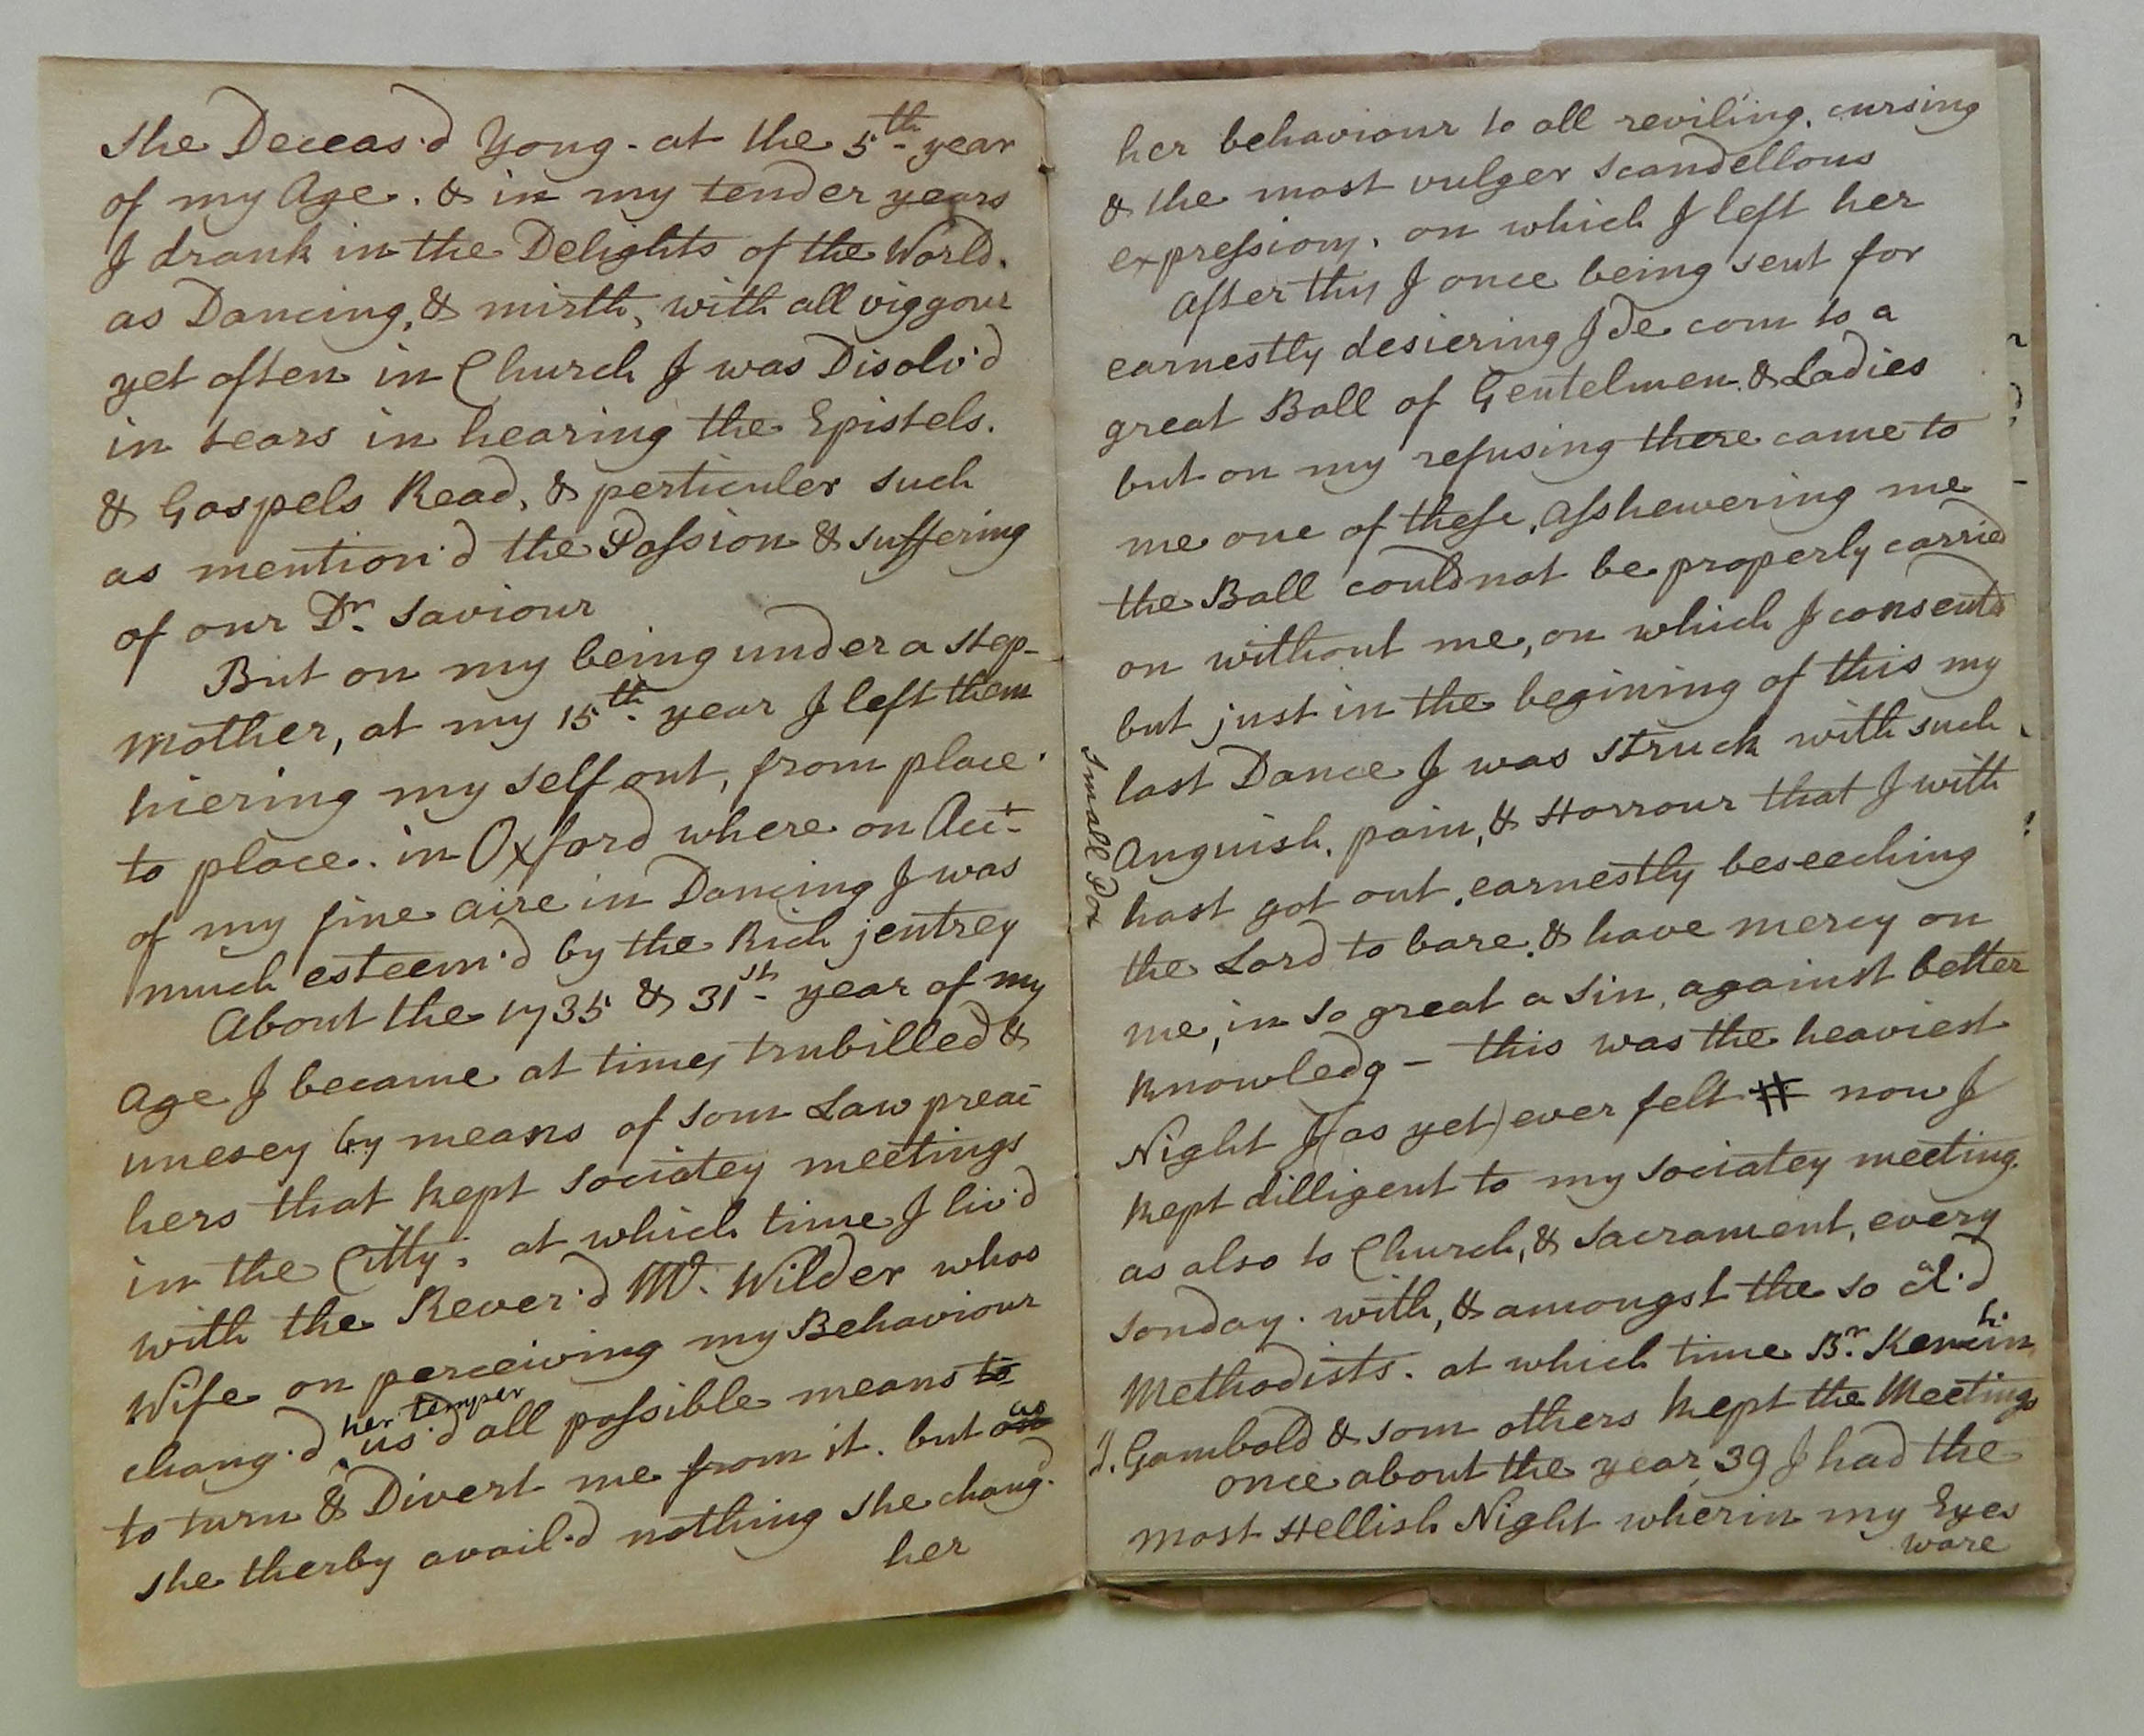 she Deceas'd Yong. at the 5th year
of my Age. & in my tender years
I drank in the Delights of the World.
as Dancing, & mirth, with all viggour
yet often in Church I was Disolv'd
in tears in hearing the Epistels.
& Gospels Read, & perticuler such
as mention'd the Passion & suffering
of our Dr. Saviour
But on my being under a step-
Mother, at my 15th. year I left them
hiering my self out, from place
to place. in Oxford where on Acct.
of my fine aire in Dancing I was
much esteem'd by the Rich jentrey
About the 1735 & 31st year of my
Age I became at times trubilled &
unesey by means of som Law preac
hers that kept sociatey meetings
in the Citty; at which time I liv'd
with the Rever'd Mr. Wilder whos
Wife on perceiving my Behaviour
her temper
chang'd us'd all possible means to
as
to turn & Divert me from it. but
she therby avail'd nothing she chang'd
her
her behaviour to all reviling, cursing
& the most vulger scandellous
expressions, on which I left her
After this I once being sent for
earnestly desiering I'de com to a
great Ball of Gentelmen & Ladies
but on my refusing there came to
me one of these, asshewering me
the Ball could not be properly carried
on without me, on which I consented
but just in the begining of this my
last Dance I was struck with such
Anguish, pain, & Horrour that I with
hast got out, earnestly beseeching
the Lord to bare & have mercy on
me, in so great a sin, against better
Knowledg - this was the heaviest
Night I (as yet) ever felt # now I
kept dilligent to my sociatey meeting.
as also to Church, & Sacrament, every
sonday. with, & amongst the so cal'd
Methodists. at which time Br. Kenchin
J. Gambold & som others kept the Meetings
once about the year 39 I had the
most Hellish Night wherin my Eyes
ware
Small Pox